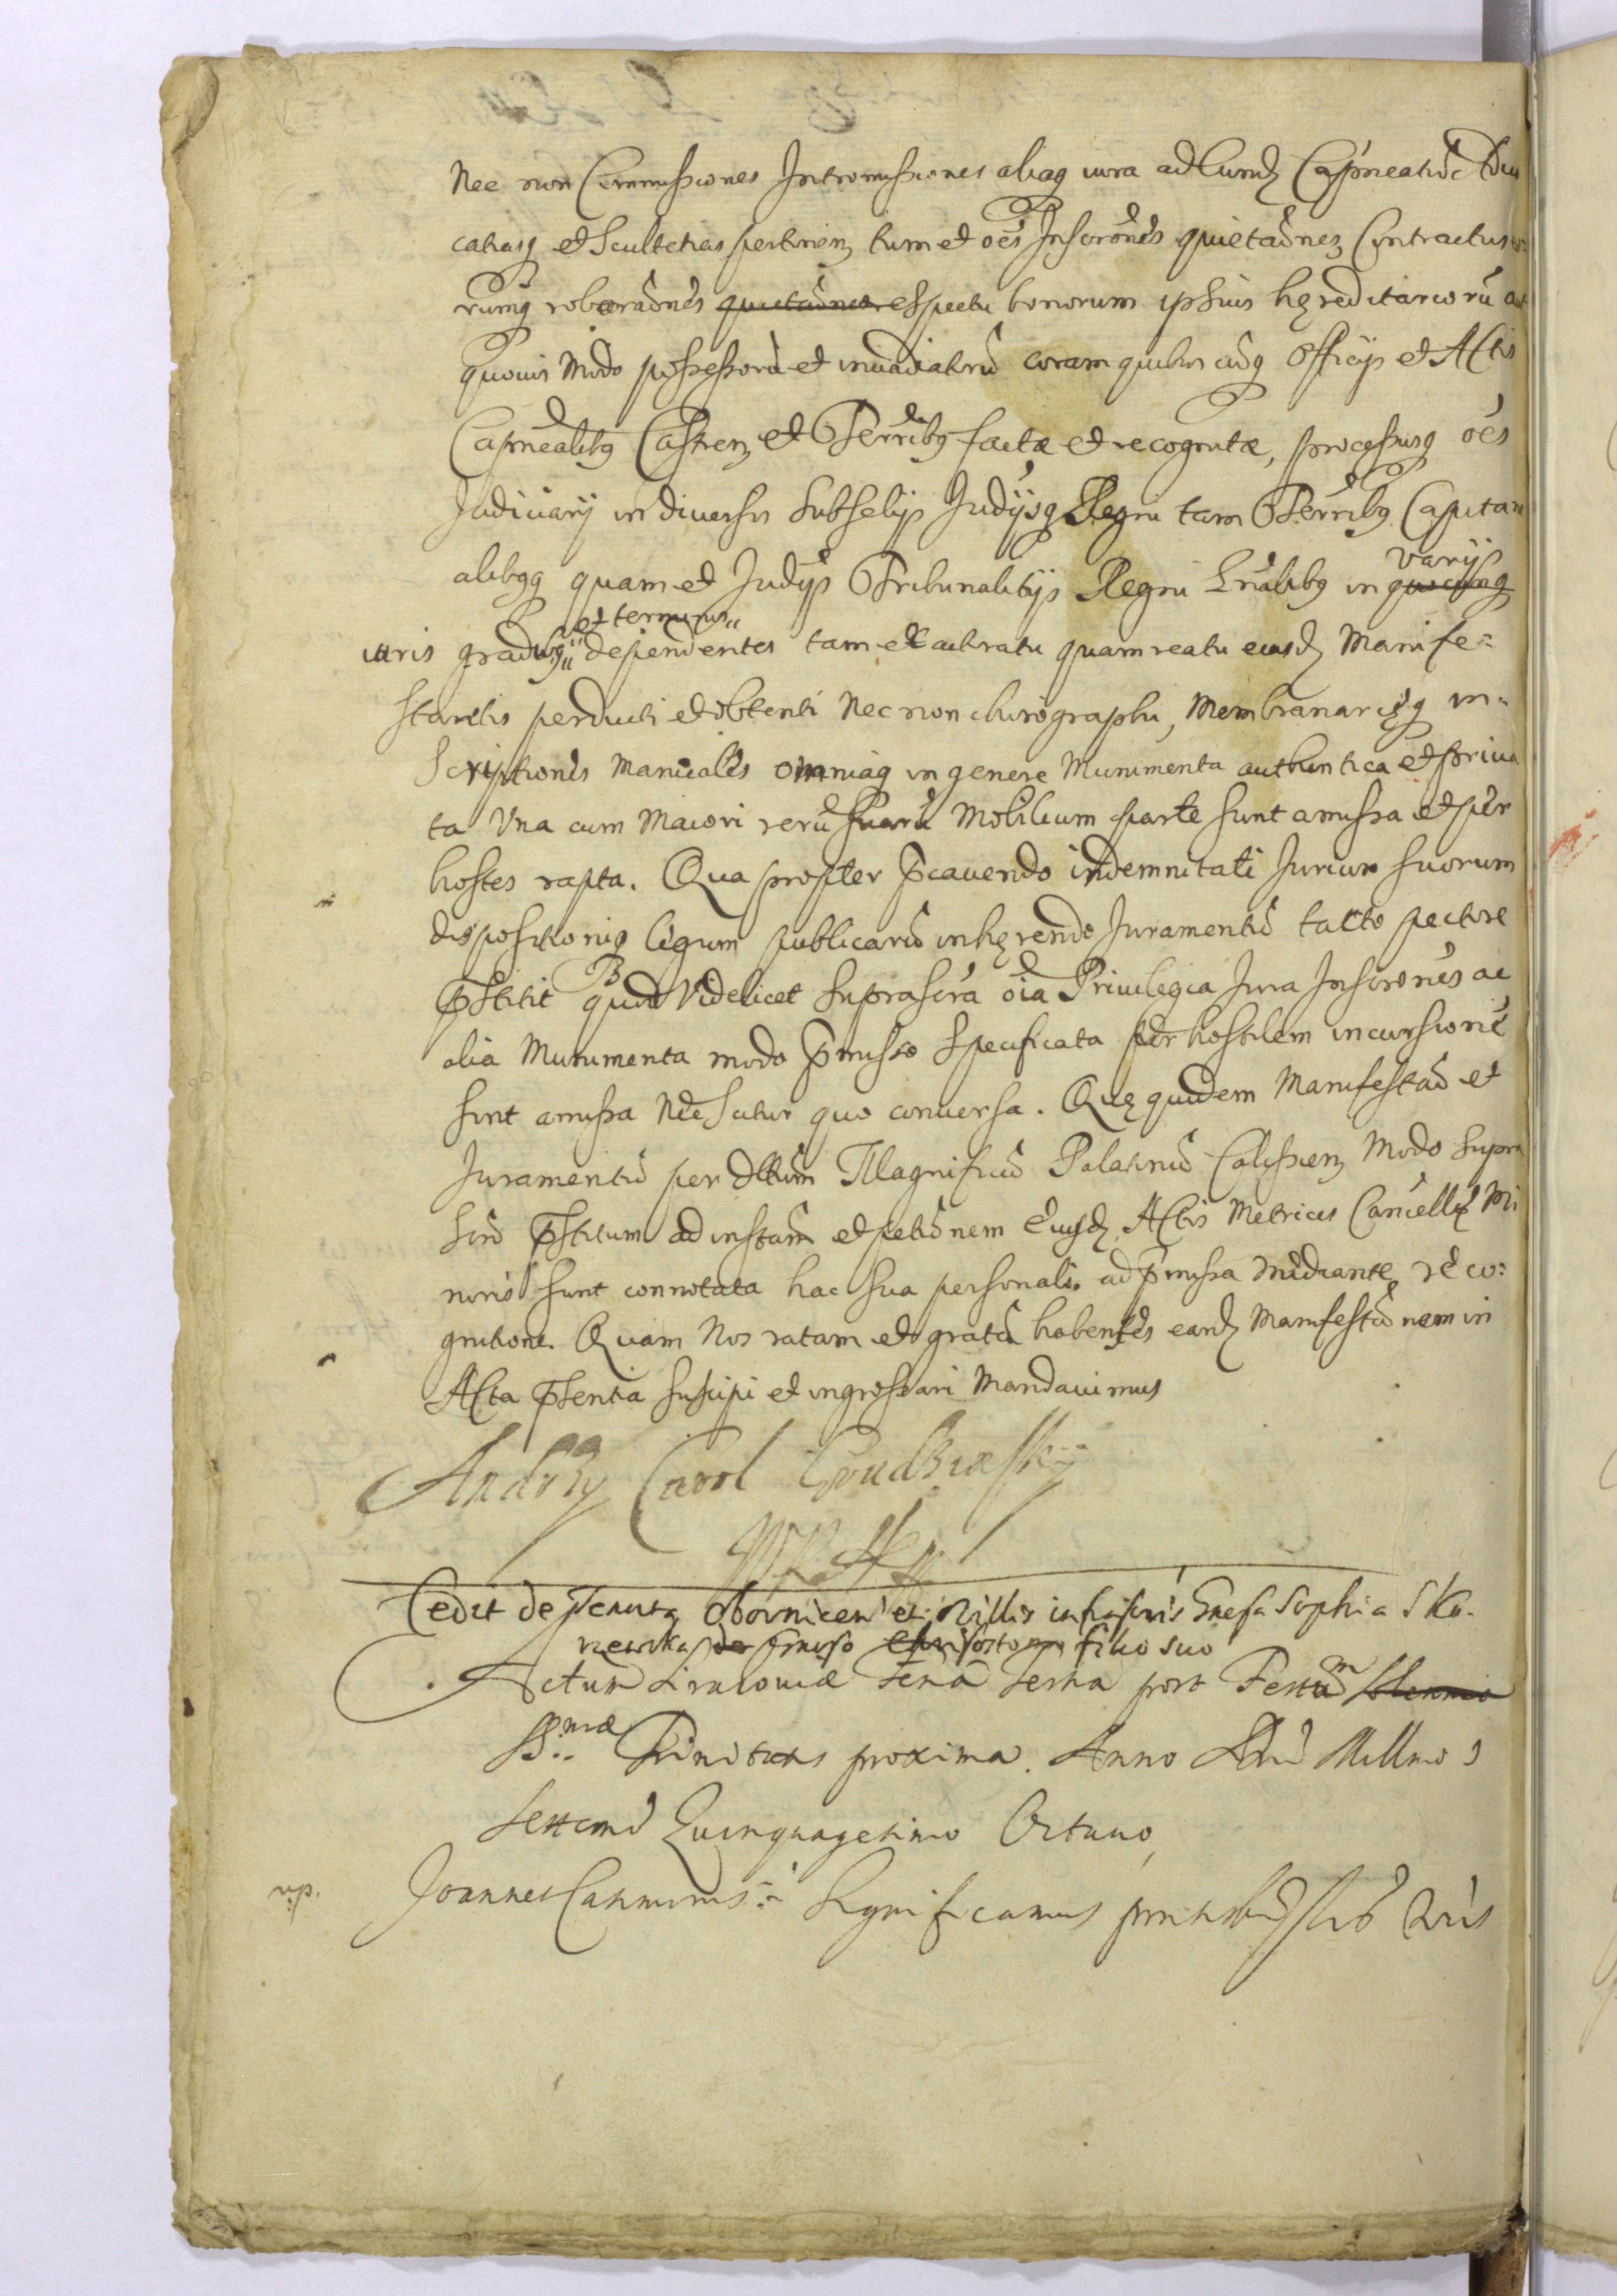 Nec non Commissiones Intromissiones aliaq iura ad Eund Capneatus
catiasq et Scultetias pertinen tum et oēs Inscrōnes quietaōnes Contractus
rumq roboraōnes quietaōnes respectu bonorum ipsius hęreditariorū aut
quovis Modo possessorū et invadiatorū coram quibuscūq Officijs et Actis
Capnealibq Castren et Terribq factæ et recognitæ, processusq oēs
Judiciarij in diversis Subselijs Judijsq Regni tam Terribq Capitan
alibqq quam et Judijs Tribunalitijs Regni Gnalibq in quocunq varijs
iuris gradibq et terminis dependentes tam ex actoratu quam reatu eiusd Manife=
stantis perducti et obtenti Nec non chirographi, Membranacęq in=
scriptiones Manuales omniaq in genere Munimenta authentica et priva
ta Una cum Maiori rerū suarū Mobilium parte sunt amissa et per
hostes rapta. Qua propter pcavendo indemnitati Jurium suorum
dispositioniq legum publicarū inhęrendo Juramentū tacto pectore
pstitit quod Videlicet suprascra oīa Privilegia Jura Inscrōnes ac
alia Munimenta modo pmisso specificata per hostilem incursionē
sint amissa Nec scitur quo conversa. Quę quidem Manifestaō et
Juramentū per dictum Magnificū Palatinū Calissien Modo supra
scrō pstitum ad instam et petiōnem Eiusd Actis Metrices Cancellę Mi
noris sunt connotata hac sua personali ad pmissa mediante reco:
gnitione. Quam Nos ratam et gratā habentes eand Manifestāōnem in
Acta psentia suscipi et ingrossari Mandavimus
Andrzy Carol Grudzinsky
Cedit de Tenuta Obornicen et Villis infrascris Gnesa Sophia Sko.
rzewska de Gnroso filio suo
Actum Varsoviæ Feria Tertia post Festum Solennio
SS.mæ Trinitatis proxima. Anno Dni Millmo
Sexcmo Quinquagesimo Octavo
Joannes Casimirus Significamus pntibq lris Nris